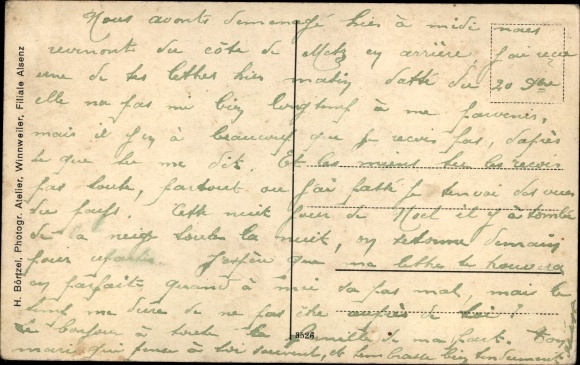 Nous avons demenagé hier à midi nous
revenons du côté de Metz en arrière j'ai recu
une de tes lettres hier matin datté du 20 Xbre
elle na pas mis bien longtemp à me parvenir,
mais il y en à beaucoup que je recois pas, daprès
ce que tu me dit. Et les miens tu les recois
pas toute, partout ou j'ai passé je tenvoi des vues
du pays. Cette nuit jour de Noel il y à tombé
de la neige toute la nuit, on retourne demain
pour
J'espère que ma lettre te trouvera
en parfaite quand à moi sa pas mal, mais le
me dure de ne pas être auprès de toi.
bonjour à toute la famille de ma part. Ton
mari qui pense à toi souvent, et t'embrasse bien tendrement
H. Börtzel, Photogr. Atelier, Winnweiler, Filiale Alsenz
3526